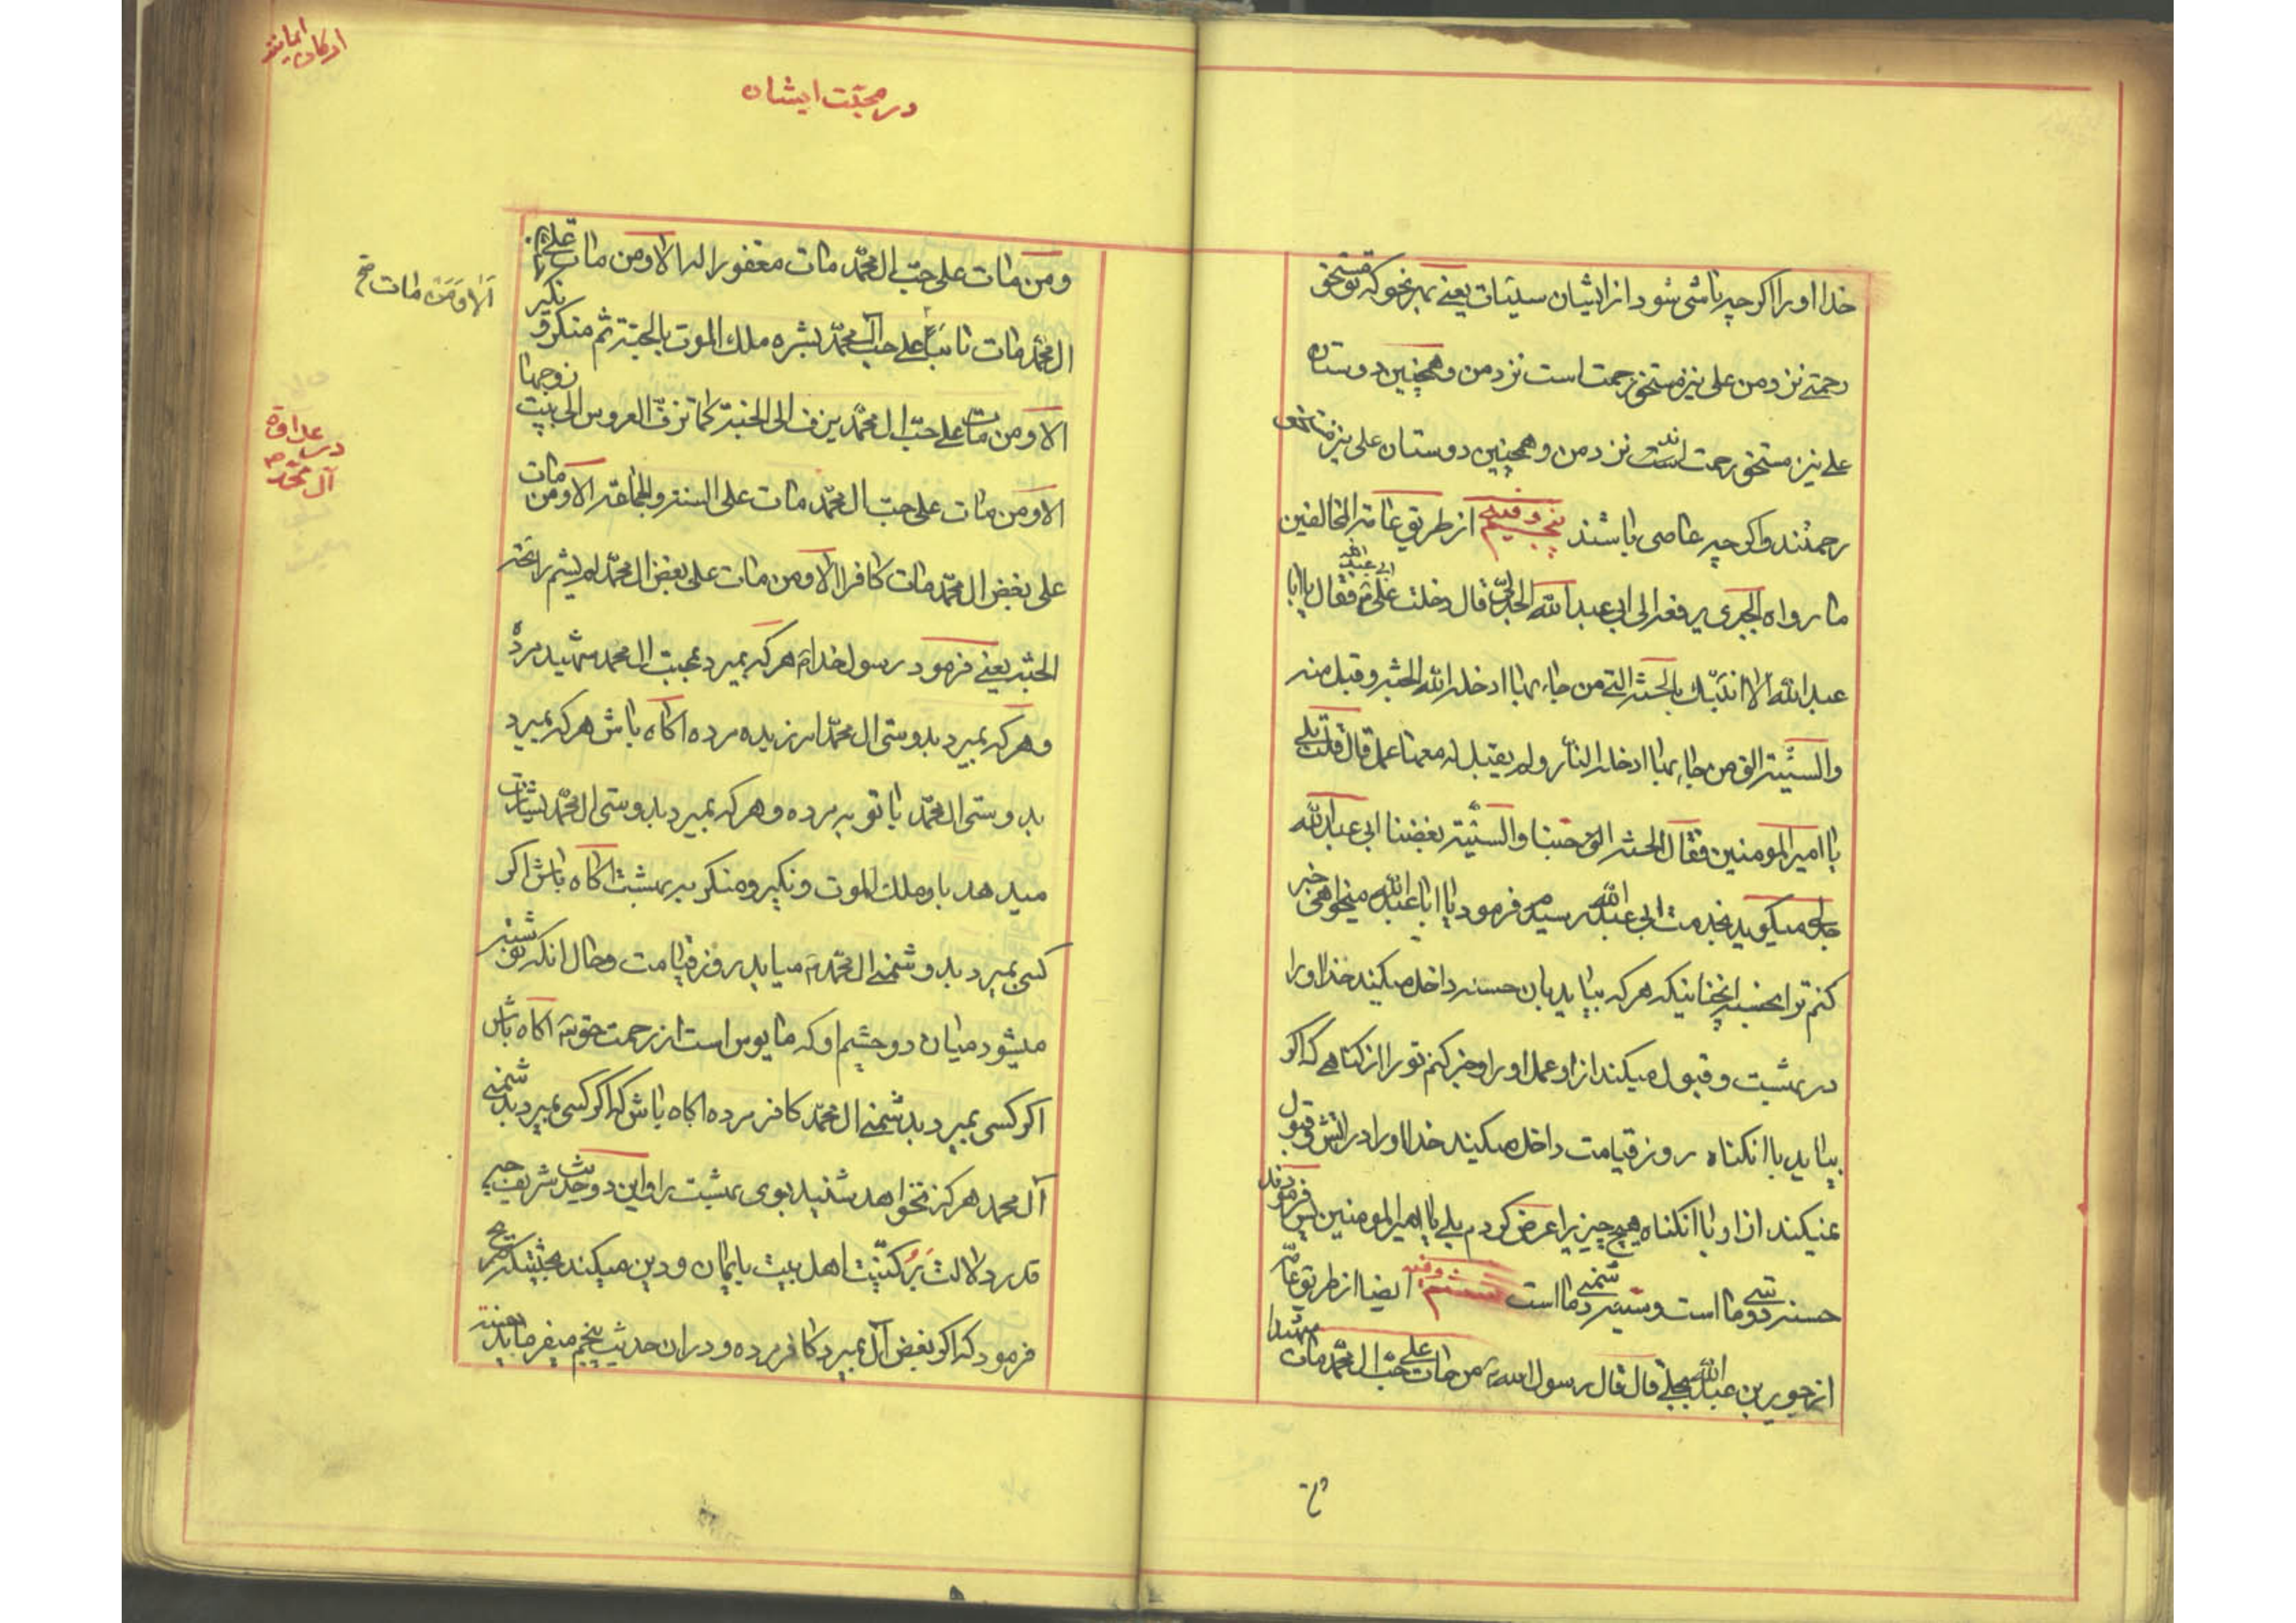 خدا اورا اکر چه ناشی شود از ایشان سیئات یعنے بهر نحو که تو مستحق
رحمتے نزد من علی نیز مستحق رحمت است نزد من و همچنین دوستان
علے نیز مستحق رحمت اند نزد من و همچنین دوستان علی نیز مستحق
رحمتند و اکر چه عاصی باشند پنجم وفیه از طریق عامة المخالفین
ما رواه الجبری یرفعه الی ابی عبدالله الجدلی قال دخلت علی فقال یا ابا
عبدالله الا انبئک بالحسنة التے من جاء بها ادخله الله الجنة و قبل منه
والسیئة التی من جاء بها ادخله النار و لم یقبل له معها عمل قال قلت بلے
یا امیر المومنین فقال الحسنة حبنا والسیئة بغضنا ابی عبدالله
جدلی میکوید بخدمت ابی عبدالله رسیدم فرمود یا ابا عبدالله میخواهی خبر
کنم ترا بحسنه انچنانیکه هر که بیاید بان حسنه داخل میکند خدا اورا
در بهشت و قبول میکند از او عمل اورا و خبر کنم تورا از کناهے که اکر
بیاید با انکناه روز قیامت داخل میکند خدا اورا در اتش و قبول
نمیکند از او با انکناه هیچ چیزیرا عرض کردم بلے یا امیر المومنین پس فرمودند
حسنه دوستی ما است و سیئه دشمنے ما است ششم وفیه ایضا از طریق عامه
از جویر بن عبدالله بجلے قال قال رسول الله من مات علی حب ال محمد مات شهیدا
در محبّت ایشان
ومن مات علی حبّ ال محمّد مات مغفورا له الا ومن مات علی حب
ال محمّد مات تائبا علے حب ال محمّد بشره ملک الموت بالجنة ثم منکر و نکیر
الا ومن مات علے حبّ ال محمّد یزف الی الجنة کما تزفّ العروس الی بیت زوجها
الا ومن مات علی حبّ ال محمّد مات علی السنة والجماعة الا ومن مات
علی بغض ال محمّد مات کافرا الا ومن مات علی بغض ال محمّد لم یشم رائحة
الجنة یعنے فرمود رسول خدا هر که بمیرد بمحبت ال محمد شهید مرده
و هر که بمیرد بدوستی ال محمّد امرزیده مرده اکاه باش هر که بمیرد
بدوستی ال محمّد با توبه مرده و هر که بمیرد بدوستی ال محمّد بشارت
میدهد باو ملک الموت و نکیر و منکر به بهشت اکاه باش اکر
کسی بمیرد بدشمنے ال محمّد میاید روز قیامت و حال انکه نوشته
میشود میان دو چشم او که مایوس است از رحمت حق اکاه باش
اکر کسی بمیرد بدشمنے ال محمّد کافر مرده اکاه باش که اکر کسی بمیرد بدشمنے
آل محمد هرکز نخواهد شنید بوی بهشت را و این دو حدیث شریف چه
قدر دلالت بر اهل بیت بایمان و دین میکند
فرمود که اکر ببغض آل بمیرد کافر مرده و در ان حدیث پنجم میفرماید
الا وَمَن مات
در عداوة
آل محمّد